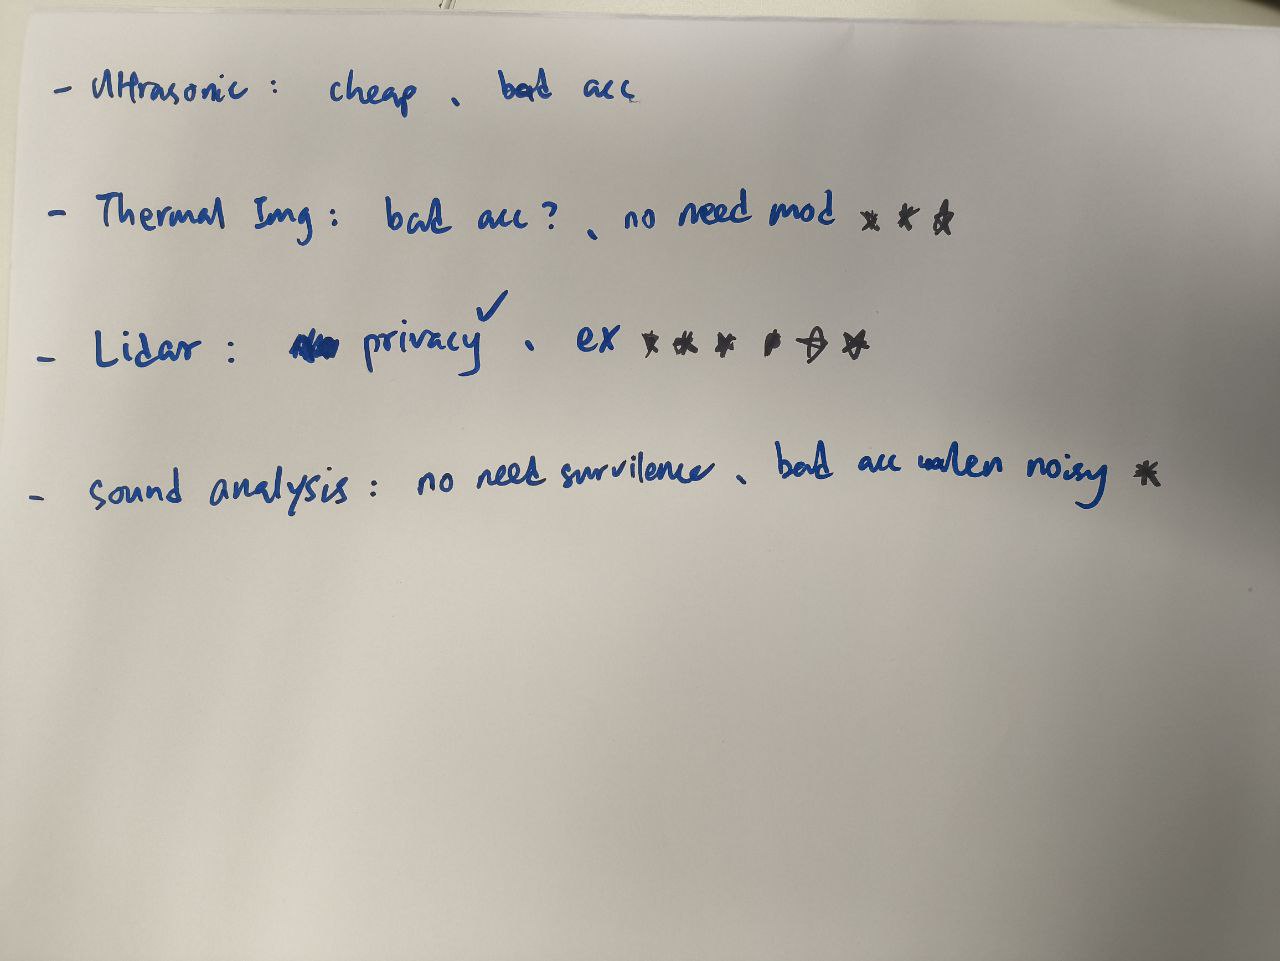 - Ultrasonic : cheap 、 bad acc
- Thermal Img : bad acc ? 、 no need mod ☆ ☆ ☆
- Lidar : privacy ✓ 、 ex ☆ ☆ ☆ ☆ ☆ ☆
- sound analysis : no need survilence 、 bad acc when noisy ☆